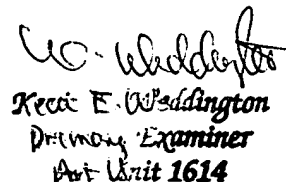 K. Weddington
E. Weddington
Primary Examiner
Art Unit 1614